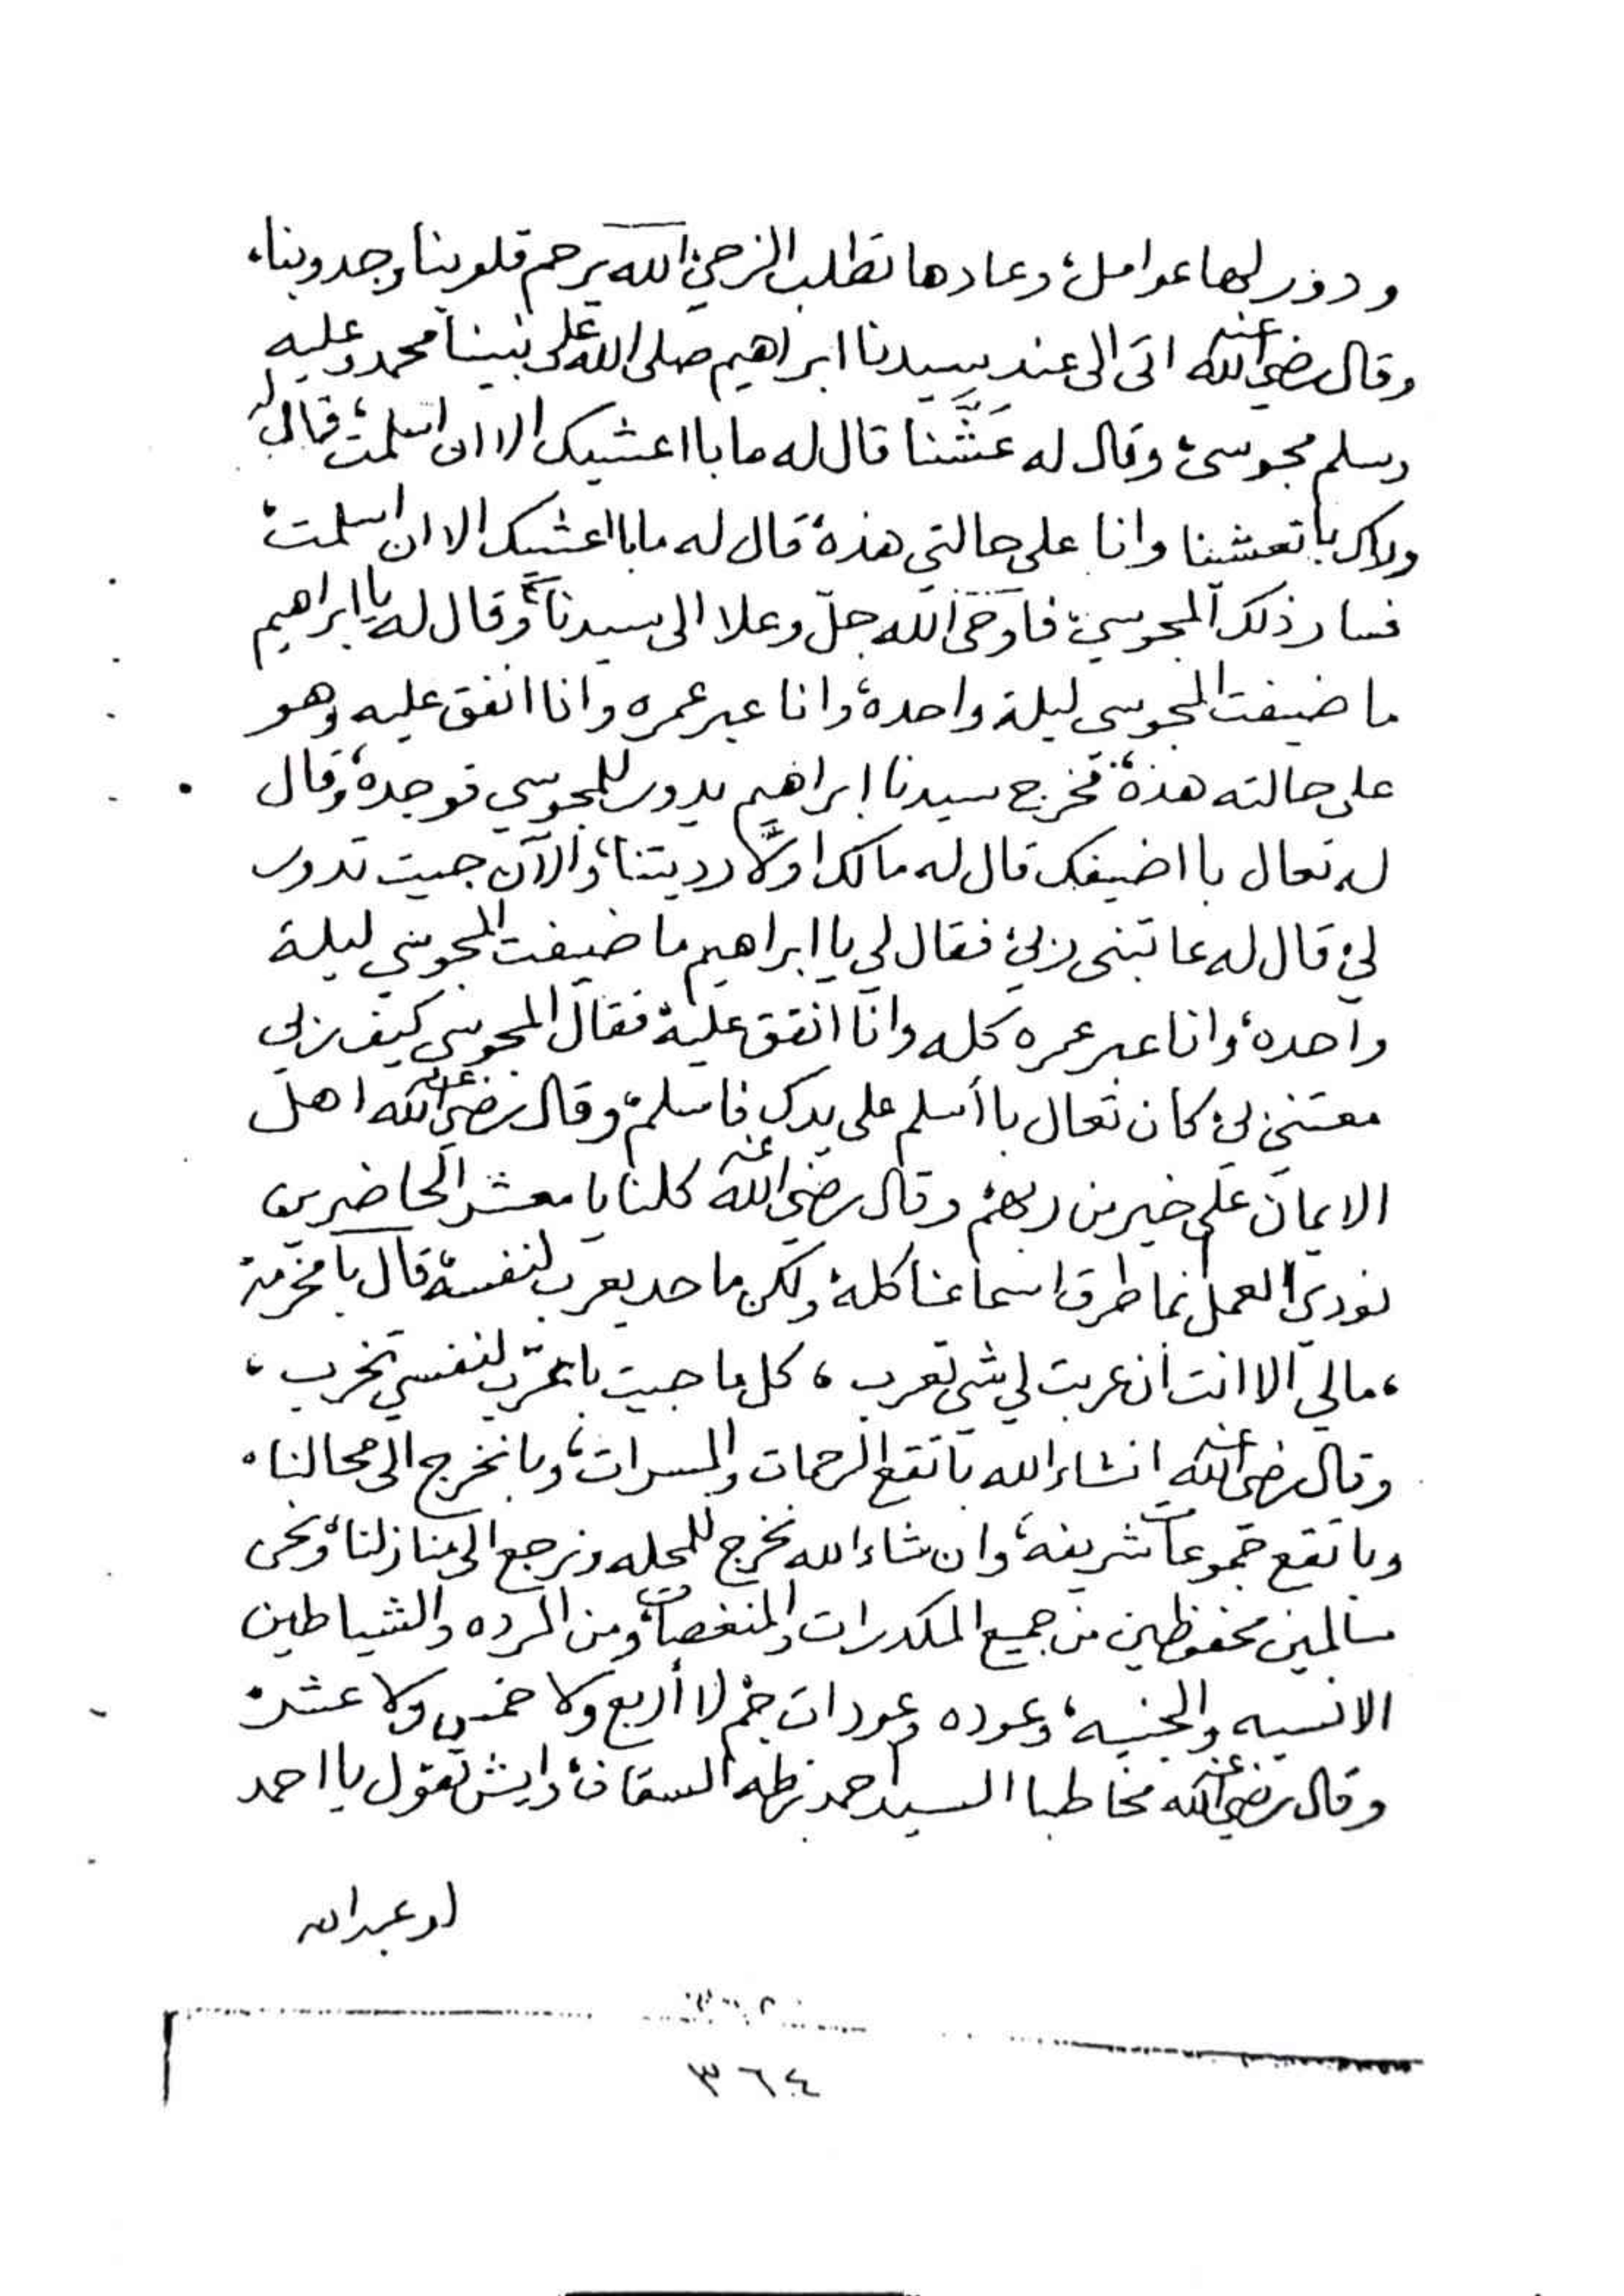 ودور لها عوامل، وعادها تطلب الرحمن الله يرحم قلوبنا وجدوبنا،
وقال رضي الله عنه اتى الى عند سيدنا ابراهيم صلى الله على نبينا محمد وعليه
وسلم مجوسي، وقال له عَشَّنا قال له ما با اعشيك الا ان اسلمت، قال له
ولاك با تعشينا وانا على حالتي هذه، قال له ما با اعشيك الا ان اسلمت،
فسار ذلك المجوسي، فأوحى الله جلّ وعلا الى سيدنا، وقال له يا ابراهيم
ما ضيفت المجوسي ليلة واحدة، وانا عبر عمره وانا انفق عليه وهو
على حالته هذه، فخرج سيدنا ابراهيم يدور للمجوسي فوجده، وقال
له تعال با اضيفك قال له مالك اولاً رديتنا، والآن جيت تدور
لي، قال له عاتبنى ربي، فقال لي يا ابراهيم ما ضيفت المجوسي ليلة
واحدة، وانا عبر عمره كله وانا انفق عليه، فقال المجوسي كيف ربي
معتني بي، كان تعال با أسلم على يدك فاسلم، وقال رضي الله عنه اهل
الايمان على خير من ربهم، وقال رضي الله عنه كلنا يا معشر الحاضرين
نودي العمل نما طرق اسماعنا كله، ولكن ما حد يعرب لنفسه، قال با مخرمة
، مالي الا انت ان عربت لي شي تعرب ، كل ما جيت با عرّب لنفسي تخرب ،
وقال رضي الله عنه انشاء الله با تقع الرحمات والمسرات، وبا نخرج الى محالنا،
وبا تقع جموعات شريفه، وان شاء الله نخرج للمحله ونرجع الى منازلنا، ونحن
سالمين محفوظين من جميع المكدرات والمنغصات، ومن المرده والشياطين
الانسيه والجنيه، وعوده وعودات جم لا أربع ولا خمس ولا عشر،
وقال رضي الله عنه مخاطبا السيد احمد بن طه السقاف، وايش تقول يا احمد
او عبدالله
٣٦٤